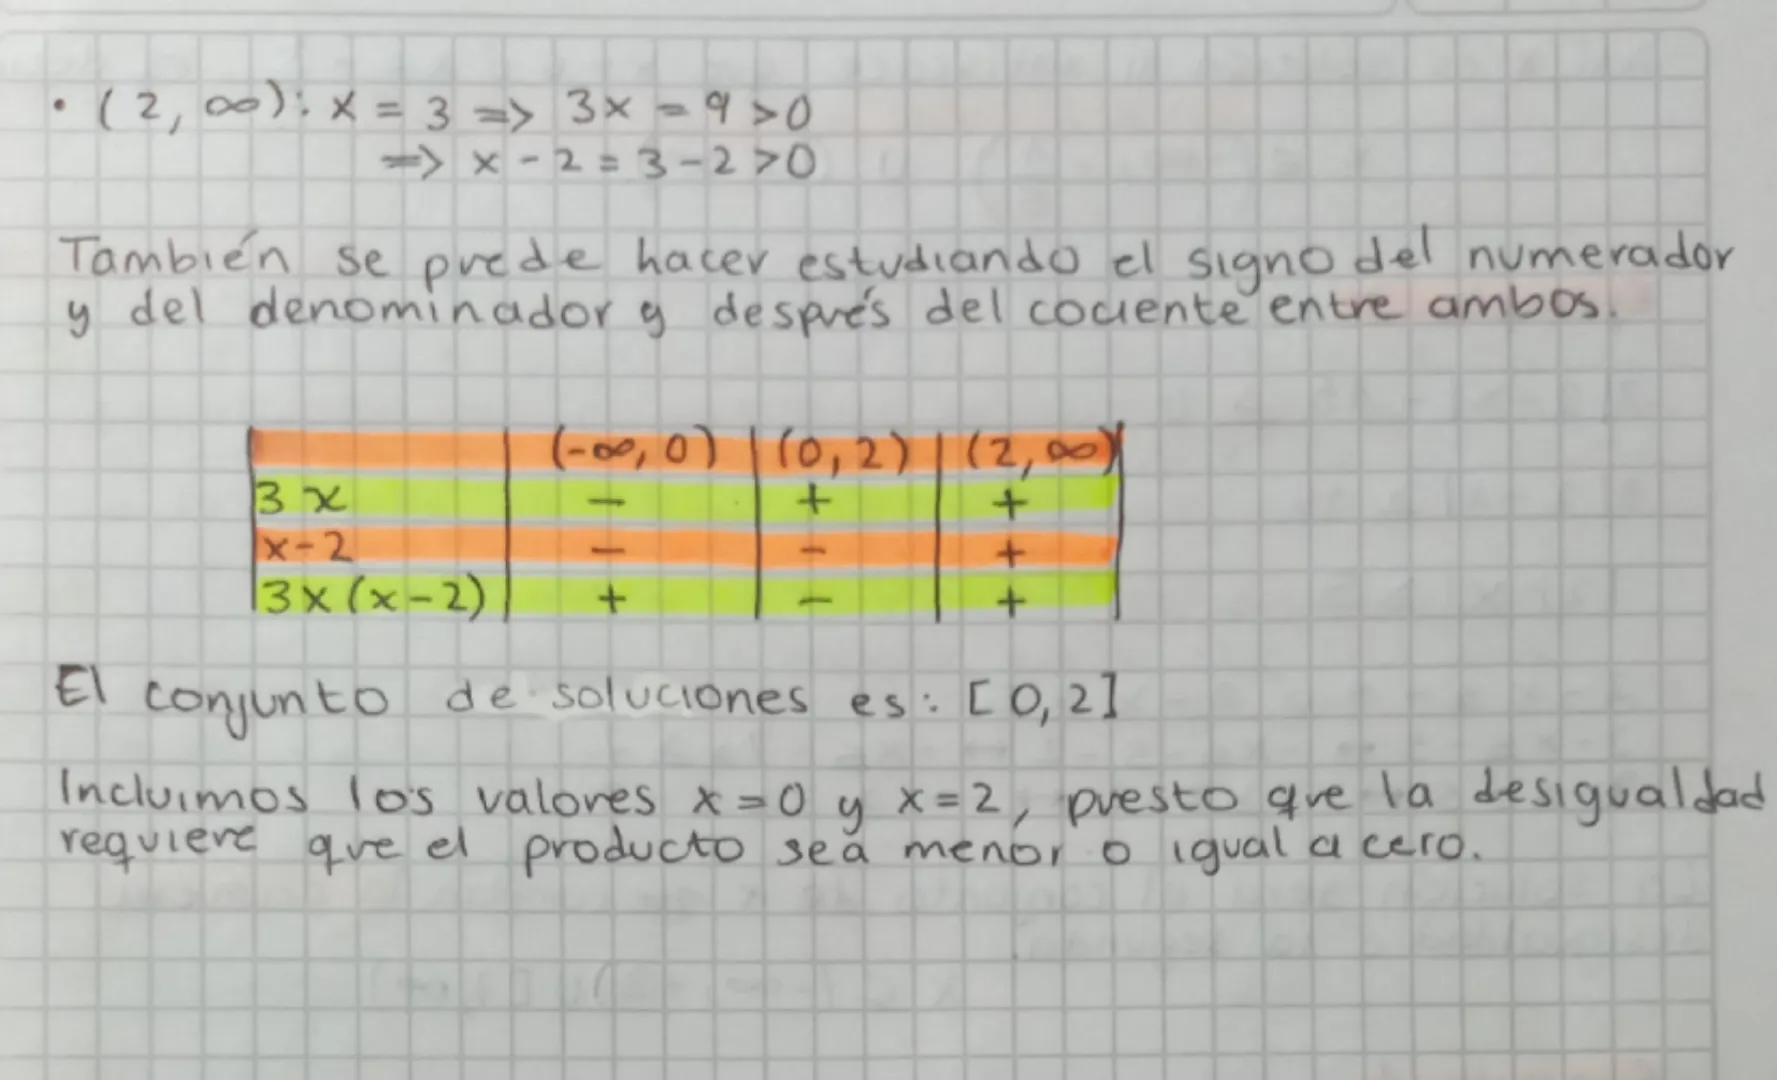 • (2, ∞): x = 3 => 3x = 9 >0
=> x - 2 = 3 - 2 >0
También se puede hacer estudiando el signo del numerador
y del denominador y después del cociente entre ambos.
(-∞, 0) (0, 2) (2, ∞)
3x - + +
x-2 - - +
3x(x-2) + - +
El conjunto de soluciones es: [0,2]
Incluimos los valores x=0 y x=2, puesto que la desigualdad
requiere que el producto sea menor o igual a cero.